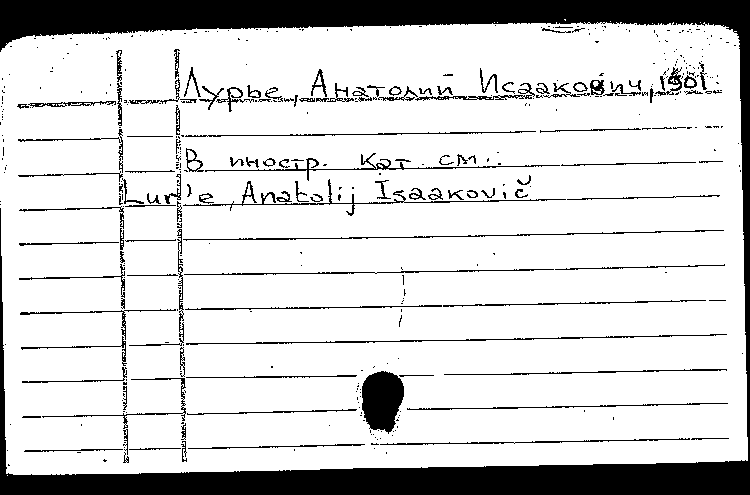 Лурье, Анатолий Исаакович, 1901
В иностр. кат см.:
Lur'e, Anatolij Isaakovič